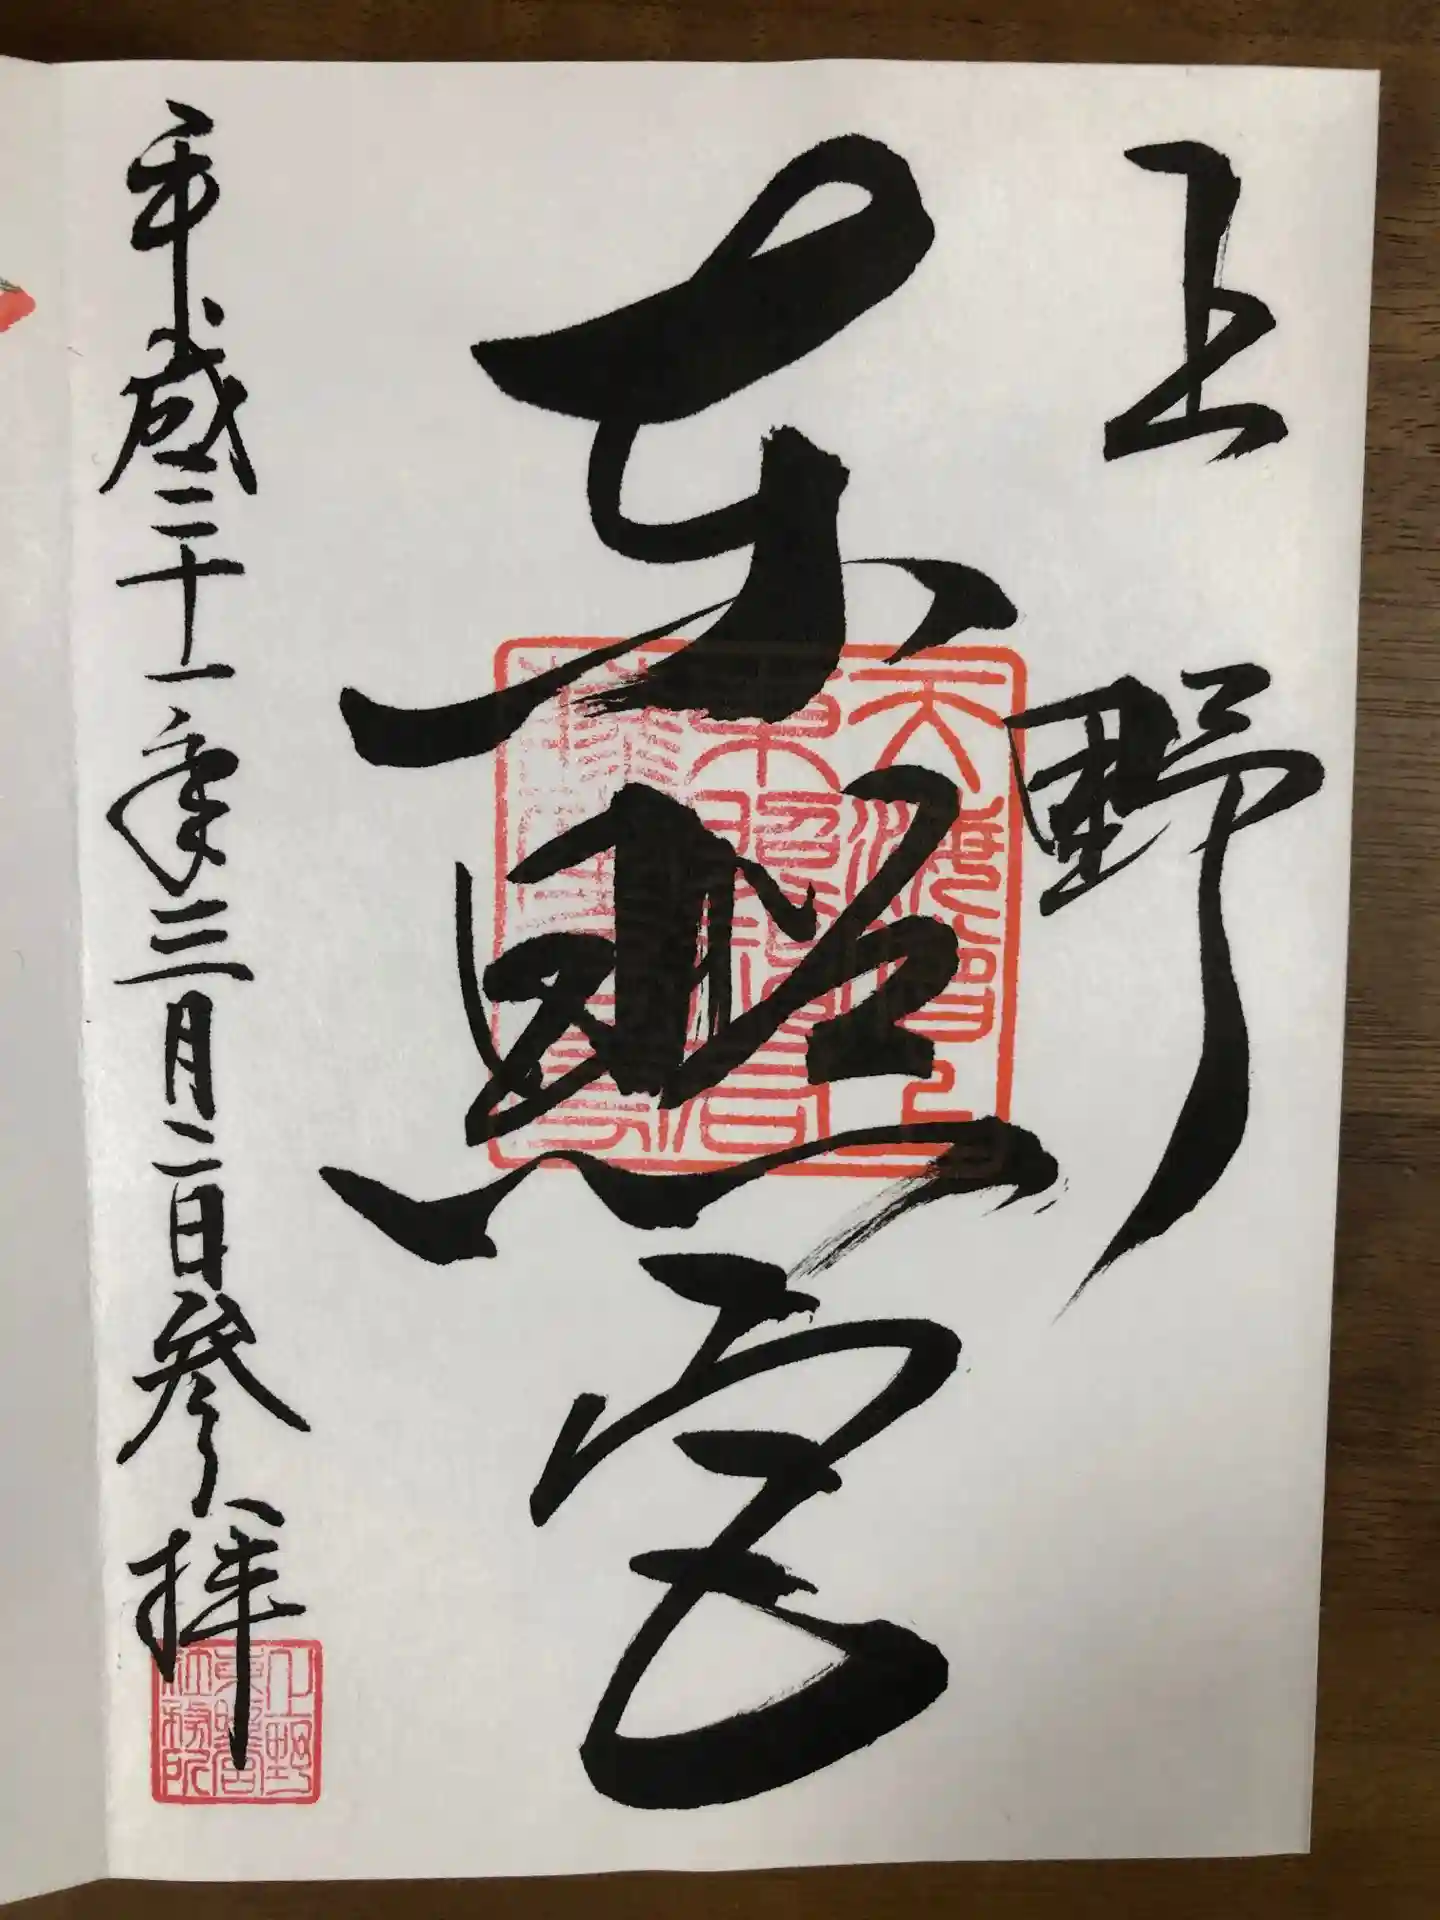 上野
東照宮
平成二十一年三月二日参拝
上野
東照宮
社務所